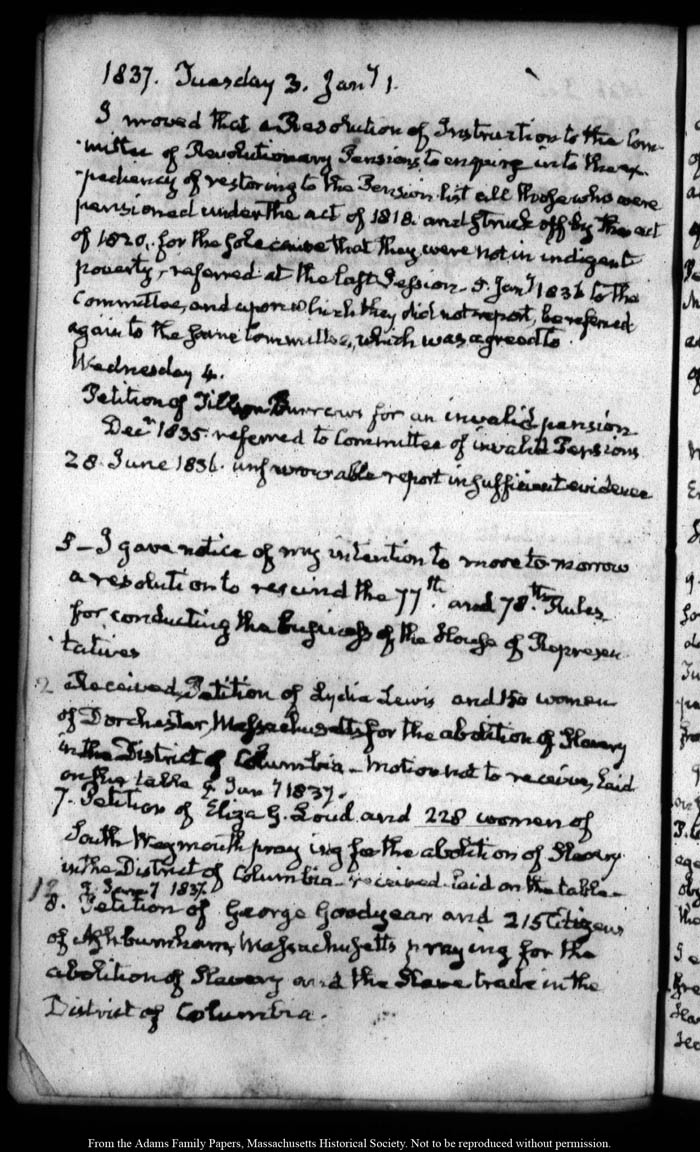 1837. Tuesday 3. Jany 1.
I moved that a Resolution of Instruction to the Com-
-mittee of Revolutionary Pensions, to enquire into the ex-
-pediency of restoring to the Pension list all those who were
pensioned under the act of 1818. and struck off by the act
of 1820. for the sole cause that they were not in indigent
poverty, referred at the last Session, 5. Jany 1836 to the
Committee, and upon which they did not report, be referred
again to the same Committee, which was agreed to.
Wednesday 4.
Petition of Burrows for an invalid pension
Decr 1835. referred to Committee of invalid Pensions
28. June 1836. unfavourable report insufficient evidence
5 – I gave notice of my intention to move to morrow
a resolution to rescind the 77th. and 78th. Rules
for conducting the business of the House of Represen-
-tatives
2 Received, Petition of Lydia Lewis and 150 women
of Dorchester, Massachusetts for the abolition of Slavery
in the District of Columbia – motion not to receive, laid
on the table 9 Jany 1837.
7. Petition of Eliza G. Loud and 228 women of
South Weymouth praying for the abolition of Slavery
in the District of Columbia – received. laid on the table –
12 9 Jany 1837.
8. Petition of George Goodyear and 215 Citizens
of Ashburnham, Massachusetts praying for the
abolition of Slavery and the Slave trade in the
District of Columbia.
From the Adams Family Papers, Massachusetts Historical Society. Not to be reproduced without permission.